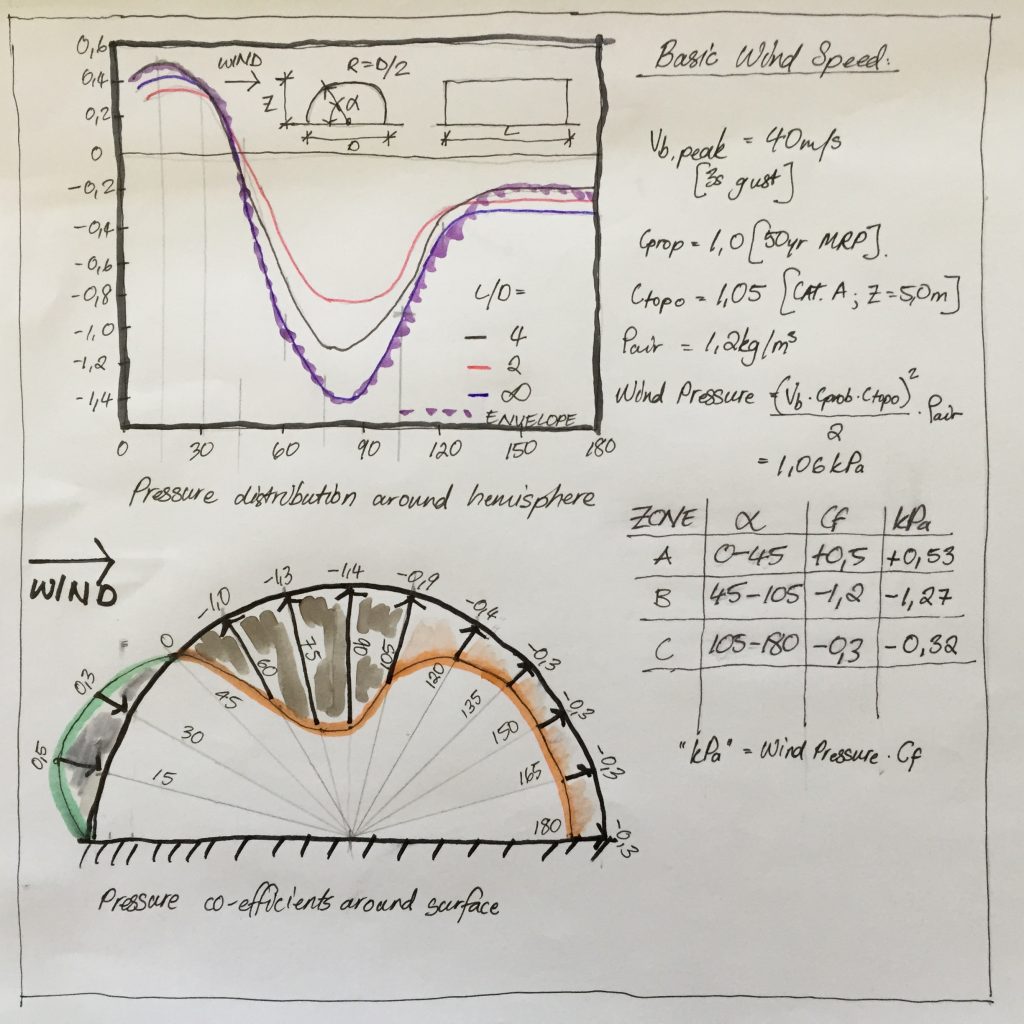 0,6
0,4
0,2
0
-0,2
-0,4
-0,6
-0,8
-1,0
-1,2
-1,4
0 30 60 90 120 150 180
WIND
R=D/2
Z
α
D
L
L/D=
4
2
∞
ENVELOPE
Pressure distribution around hemisphere
WIND
0,5
0,3
0
-1,0
-1,3
-1,4
-0,9
-0,4
-0,3
-0,3
-0,3
-0,3
15
30
45
60
75
90
105
120
135
150
165
180
Pressure co-efficients around surface
Basic Wind Speed:
Vb,peak = 40m/s
[3s gust]
Cprop = 1,0 [50yr MRP].
Ctopo = 1,05 [CAT. A ; Z=5,0m]
Pair = 1,2kg/m³
Wind Pressure = (Vb · Cprob · Ctopo)² · Pair
2
= 1,06kPa
ZONE α Cf kPa
A 0-45 +0,5 +0,53
B 45-105 -1,2 -1,27
C 105-180 -0,3 -0,32
"kPa" = Wind Pressure · Cf